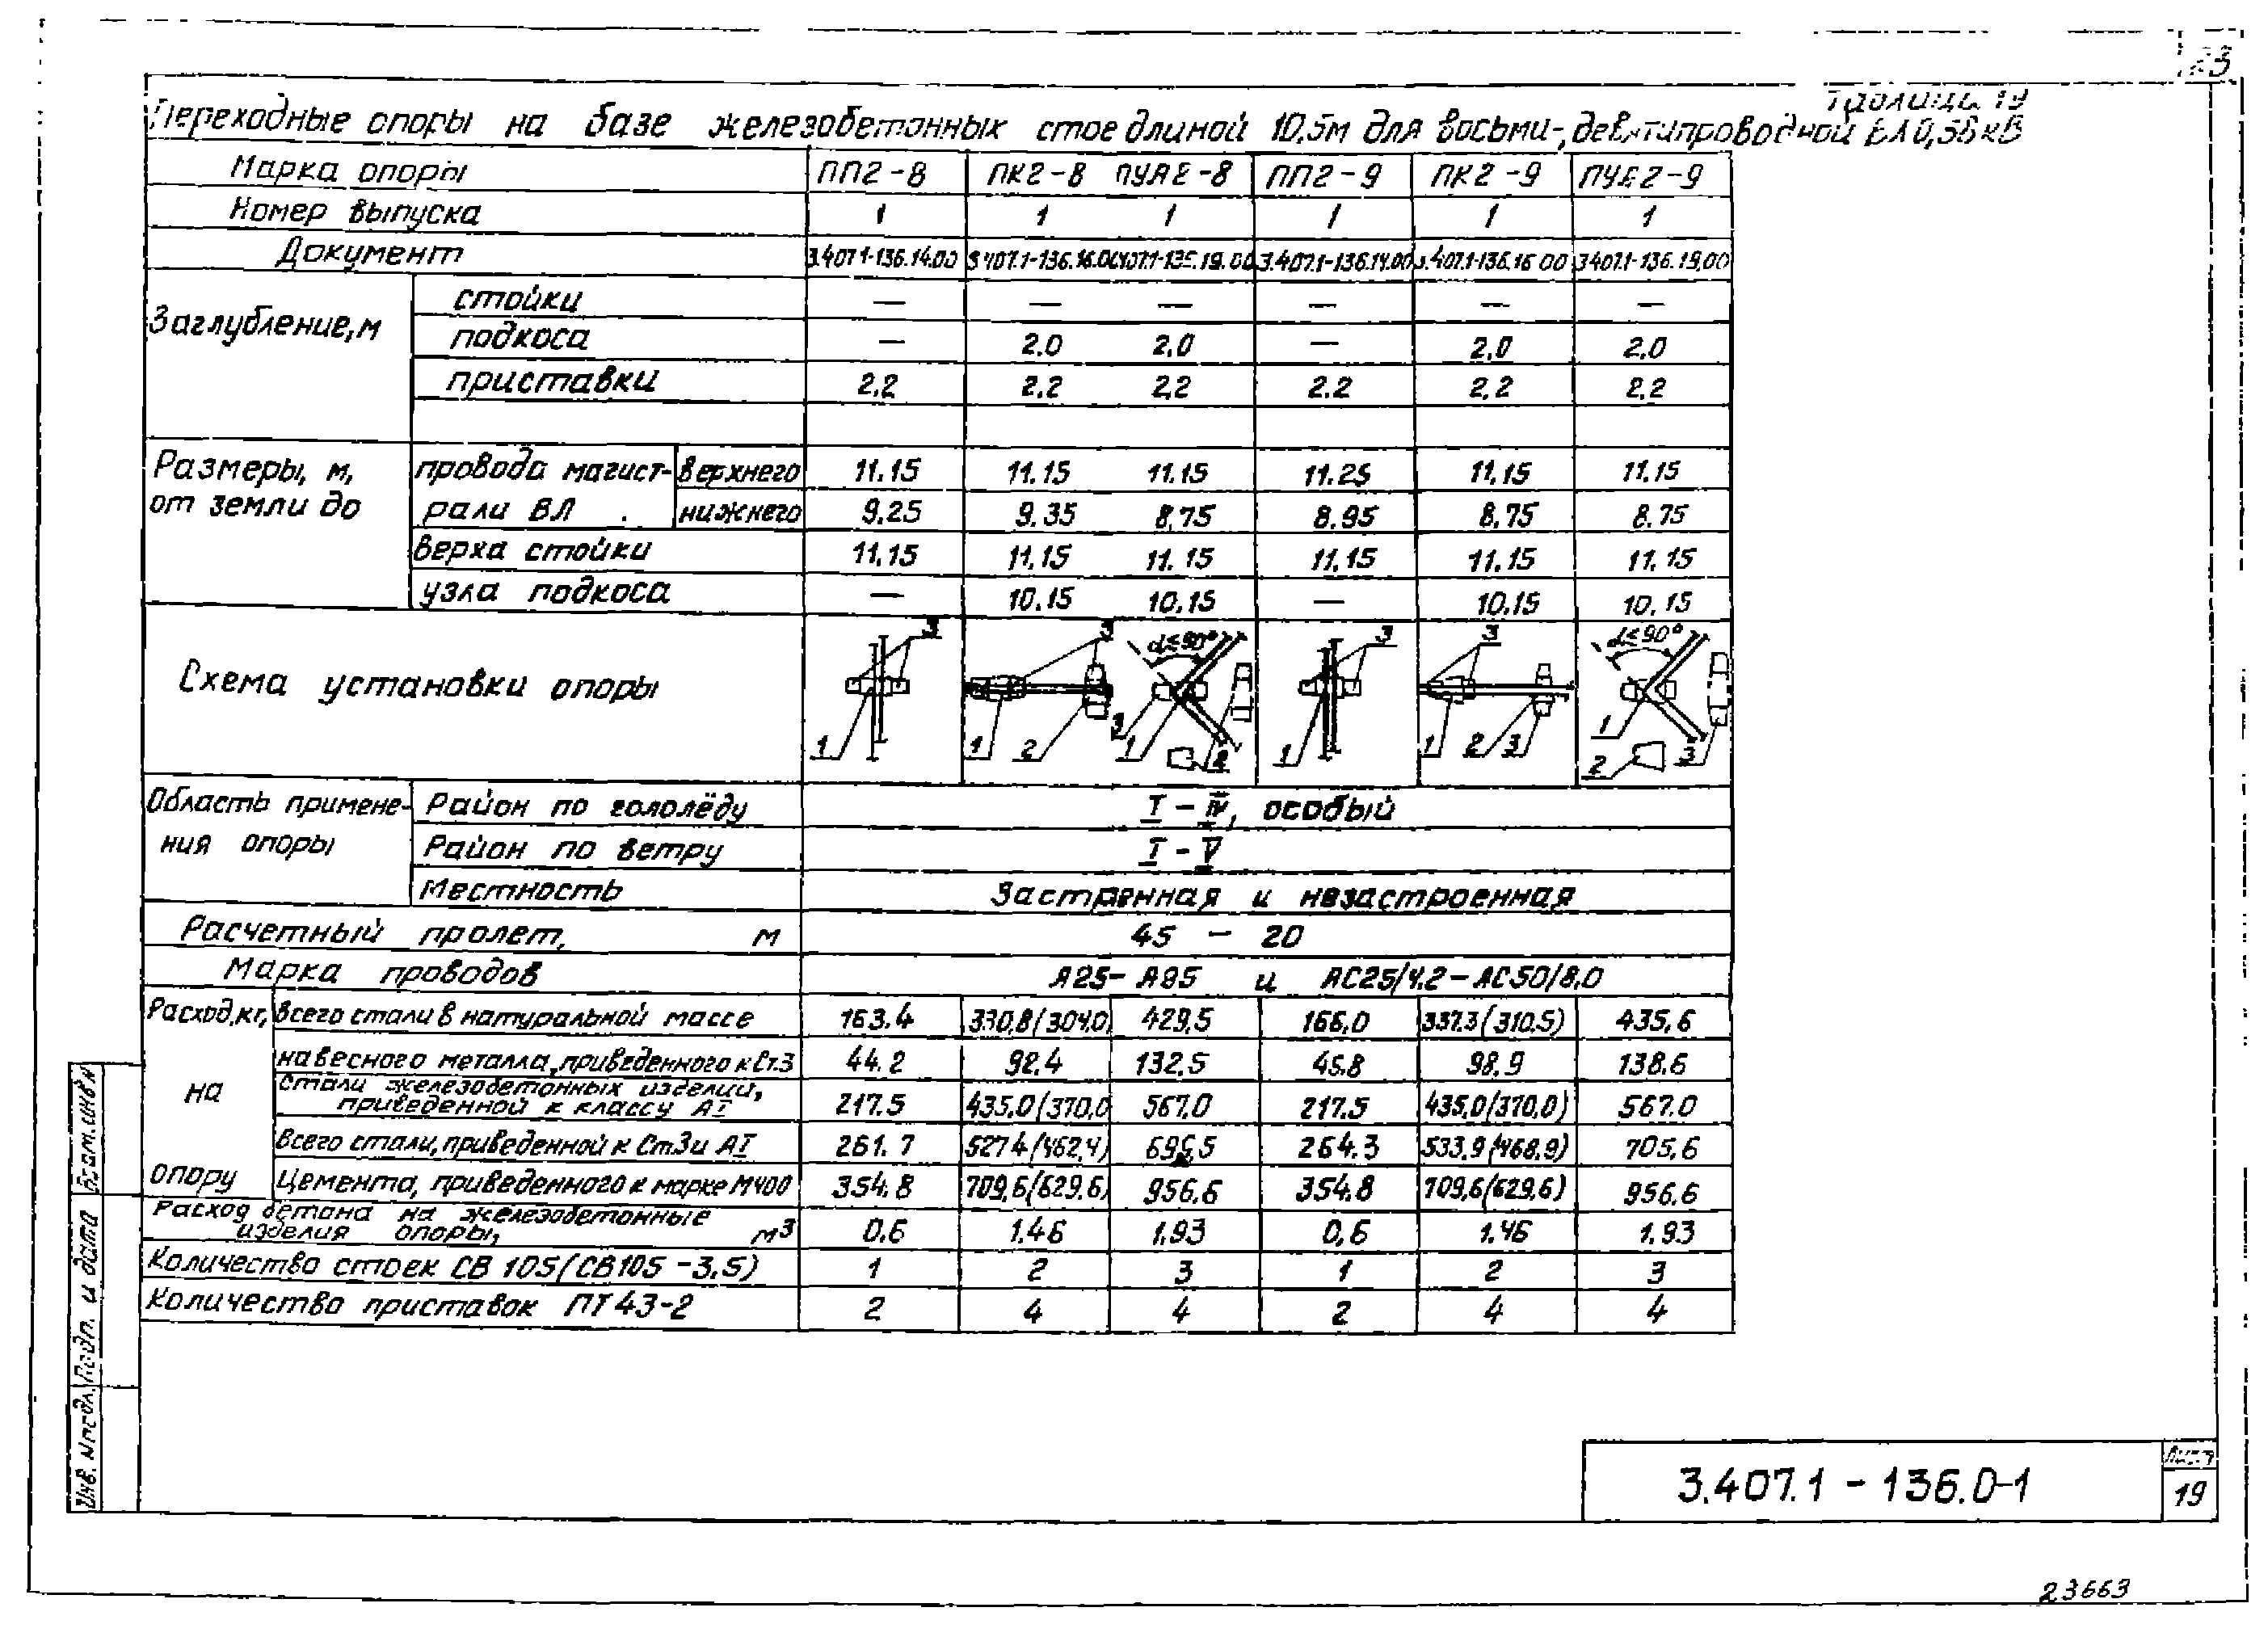 23
Таблица 19
Переходные опоры на базе железобетонных стое длиной 10,5м для восьми-, девятипроводной ВЛ 0,38 кВ
Марка опоры ПП2-8 ПК2-8 ПУА2-8 ПП2-9 ПК2-9 2-9
Номер выпуска 1 1 1 1 1 1
Документ 3.407.1-136.14.00 3.407.1-136.16.00 19.00 3.407.1-136.14.00 3.407.1-136.16.00 3.407.1-136.19.00
Заглубление, м
стойки — — — — — —
подкоса — 2.0 2.0 — 2.0 2.0
приставки 2.2 2.2 2.2 2.2 2.2 2.2
Размеры, м, от земли до
провода магистрали ВЛ
верхнего 11.15 11.15 11.15 11.25 11.15 11.15
нижнего 9.25 9.35 8.75 8.95 8.75 8.75
верха стойки 11.15 11.15 11.15 11.15 11.15 11.15
узла подкоса — 10.15 10.15 — 10.15 10.15
Схема установки опоры
3 1
3 1 2
α≤90° 3 1 2
3 1
3 1 2 3
α≤90° 1 2 3
Область применения опоры
Район по гололёду I - IV, особый
Район по ветру I - V
Местность Застроенная и незастроенная
Расчетный пролет, м 45 - 20
Марка проводов А25-А95 и АС25/4.2-АС50/8.0
Расход, кг, на опору
всего стали в натуральной массе 163.4 330,8(304,0) 429,5 166,0 337.3(310.5) 435,6
навесного металла, приведенного к Ст.3 44.2 92.4 132.5 45.8 98.9 138.6
Стали железобетонных изделий, приведенной к классу АI 217.5 435.0(370,0 567.0 217.5 435,0(370,0) 567.0
Всего стали, приведенной к Ст3 и АI 261.7 527.4(462,4) 264.3 533.9(468.9) 705.6
Цемента, приведенного к марке М400 354.8 709,6(629.6) 956.6 354.8 709,6(629.6) 956.6
Расход бетона на железобетонные изделия опоры, м³ 0.6 1.46 1.93 0,6 1.46 1.93
Количество стоек СВ 105 (СВ105-3.5) 1 2 3 1 2 3
Количество приставок ПТ43-2 2 4 4 2 4 4
Взам.инв№
Подп. и дата
Инв. №подл.
3.407.1 - 136.0-1
Лист
19
23663